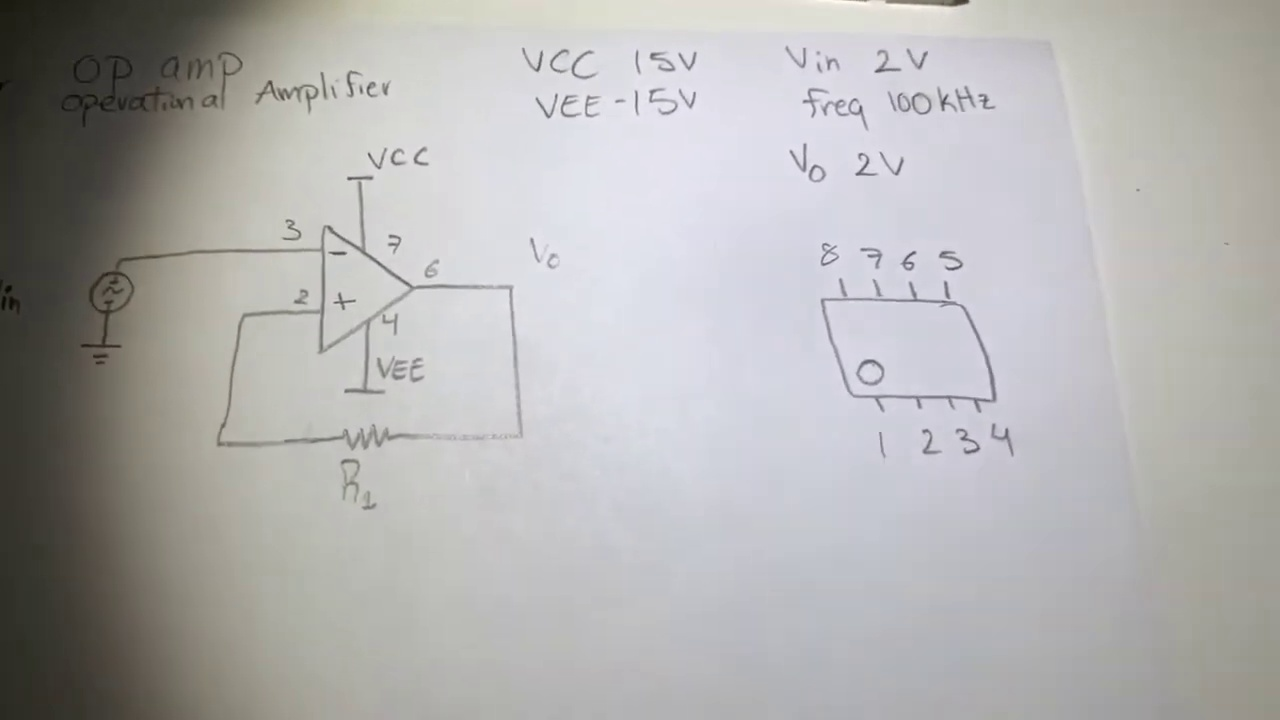 OP amp
operational Amplifier
VCC 15V
VEE -15V
Vin 2V
freq 100kHz
Vo 2V
VCC
3
-
7
6
Vo
in
2
+
4
VEE
R1
8 7 6 5
1 2 3 4